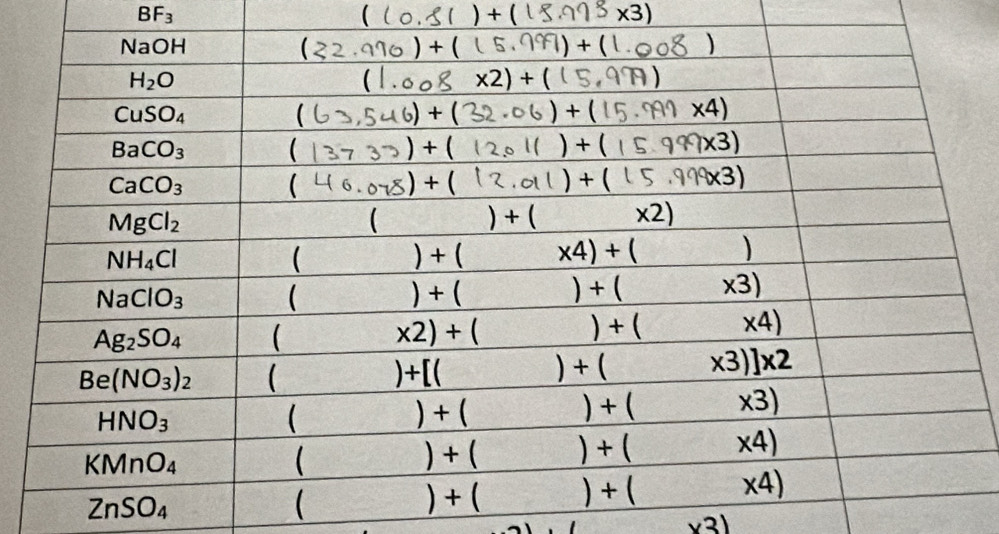 BF₃ (10.81) + (18.998 x3)
NaOH (22.990) + (15.999) + (1.008 )
H₂O (1.008 x2) + (15.999)
CuSO₄ (63.546) + (32.06) + (15.999 x4)
BaCO₃ (137.33) + (12.011) + (15.999x3)
CaCO₃ (40.078) + (12.011) + (15.999x3)
MgCl₂ ( ) + ( x2)
NH₄Cl ( ) + ( x4) + ( )
NaClO₃ ( ) + ( ) + ( x3)
Ag₂SO₄ ( x2) + ( ) + ( x4)
Be(NO₃)₂ ( )+[( ) + ( x3)]x2
HNO₃ ( ) + ( ) + ( x3)
KMnO₄ ( ) + ( ) + ( x4)
ZnSO₄ ( ) + ( ) + ( x4)
x3)